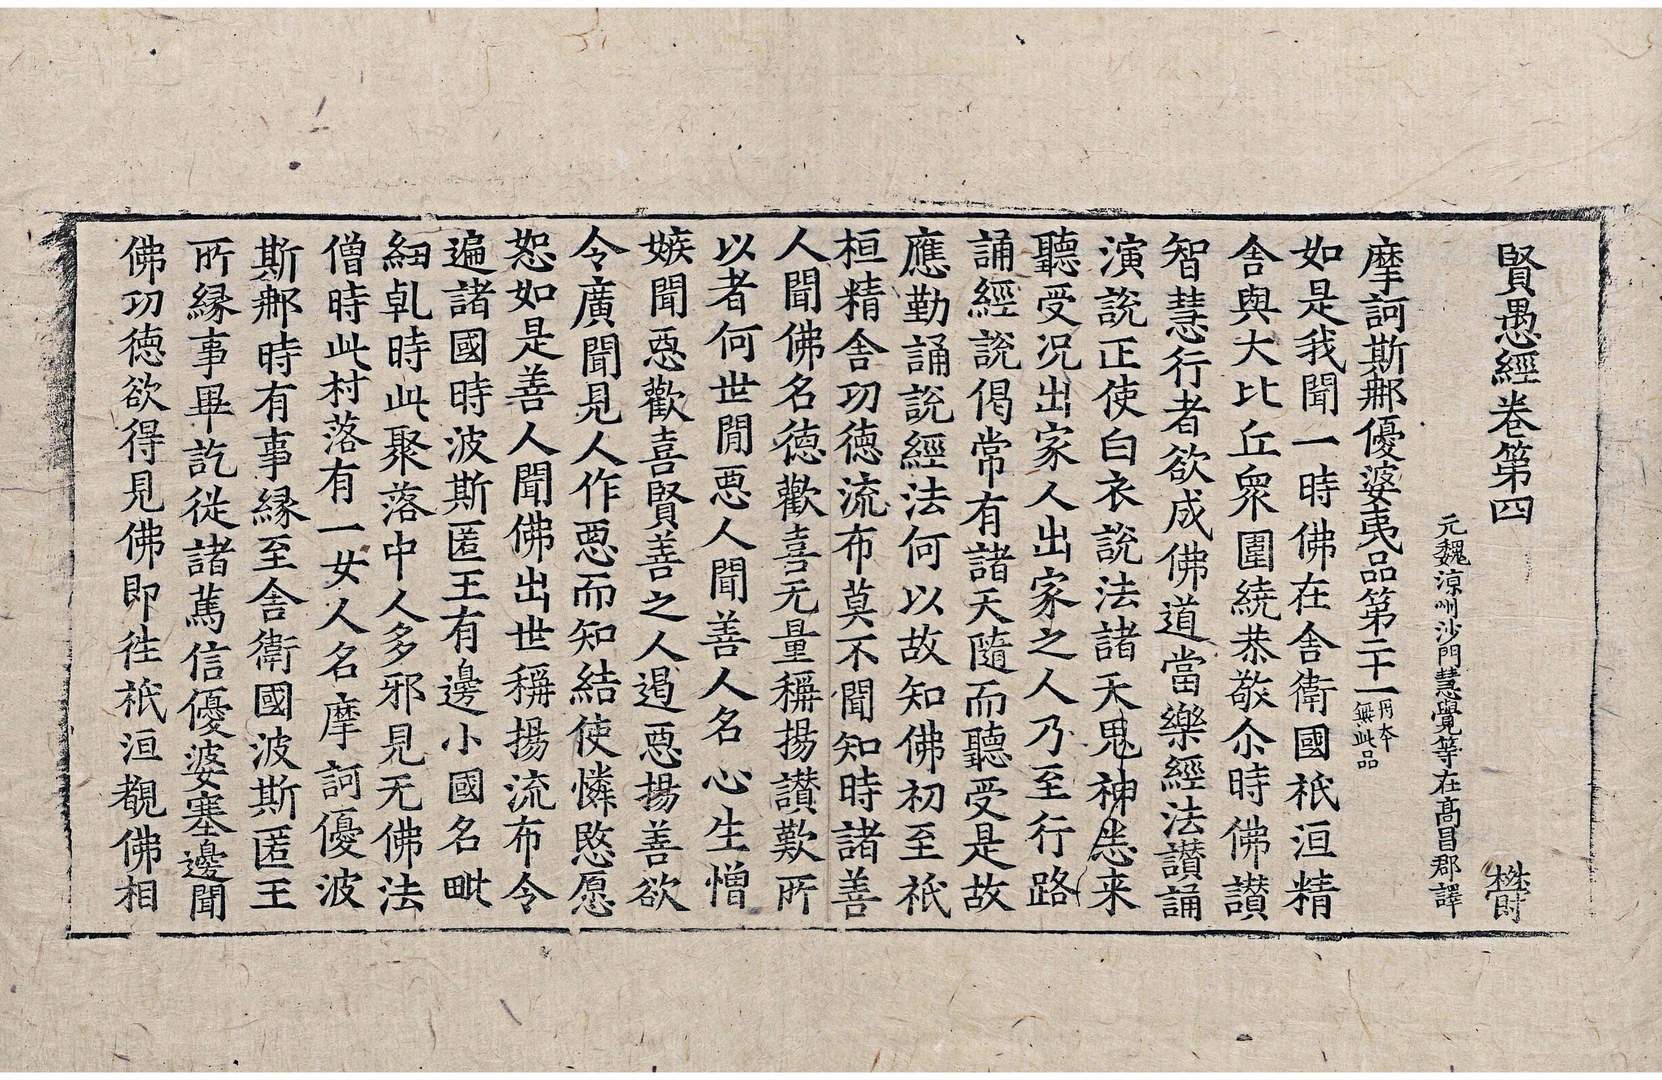 賢愚經卷第四
欎
元魏涼州沙門慧覺等在高昌郡譯
摩訶斯那優婆夷品第二十一丹本無此品
如是我聞一時佛在舍衛國祇洹精
舍與大比丘衆圍繞恭敬尒時佛讃
智慧行者欲成佛道當樂經法讃誦
演說正使白衣說法諸天鬼神悉来
聽受況出家人出家之人乃至行路
誦經說偈常有諸天隨而聽受是故
應勤誦說經法何以故知佛初至祇
桓精舍功德流布莫不聞知時諸善
人聞佛名德歡喜无量稱揚讃歎所
以者何世閒惡人聞善人名心生憎
嫉聞惡歡喜賢善之人遏惡揚善欲
令廣聞見人作惡而知結使憐愍愿
恕如是善人聞佛出世稱揚流布令
遍諸國時波斯匿王有邊小國名毗
紐乹時此聚落中人多邪見无佛法
僧時此村落有一女人名摩訶優波
斯那時有事緣至舍衛國波斯匿王
所緣事畢訖從諸篤信優婆塞邊聞
佛功德欲得見佛即往祇洹覩佛相